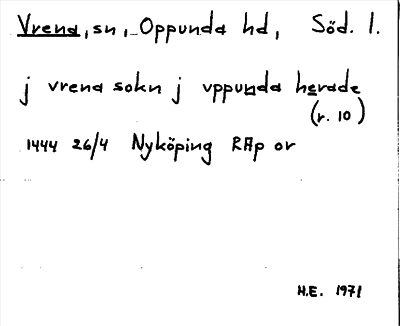 Vrena, sn, Oppunda hd, Söd. l.
j vrena sokn j vppunda herade
(r. 10)
1444 26/4 Nyköping RAp or
H.E. 1971